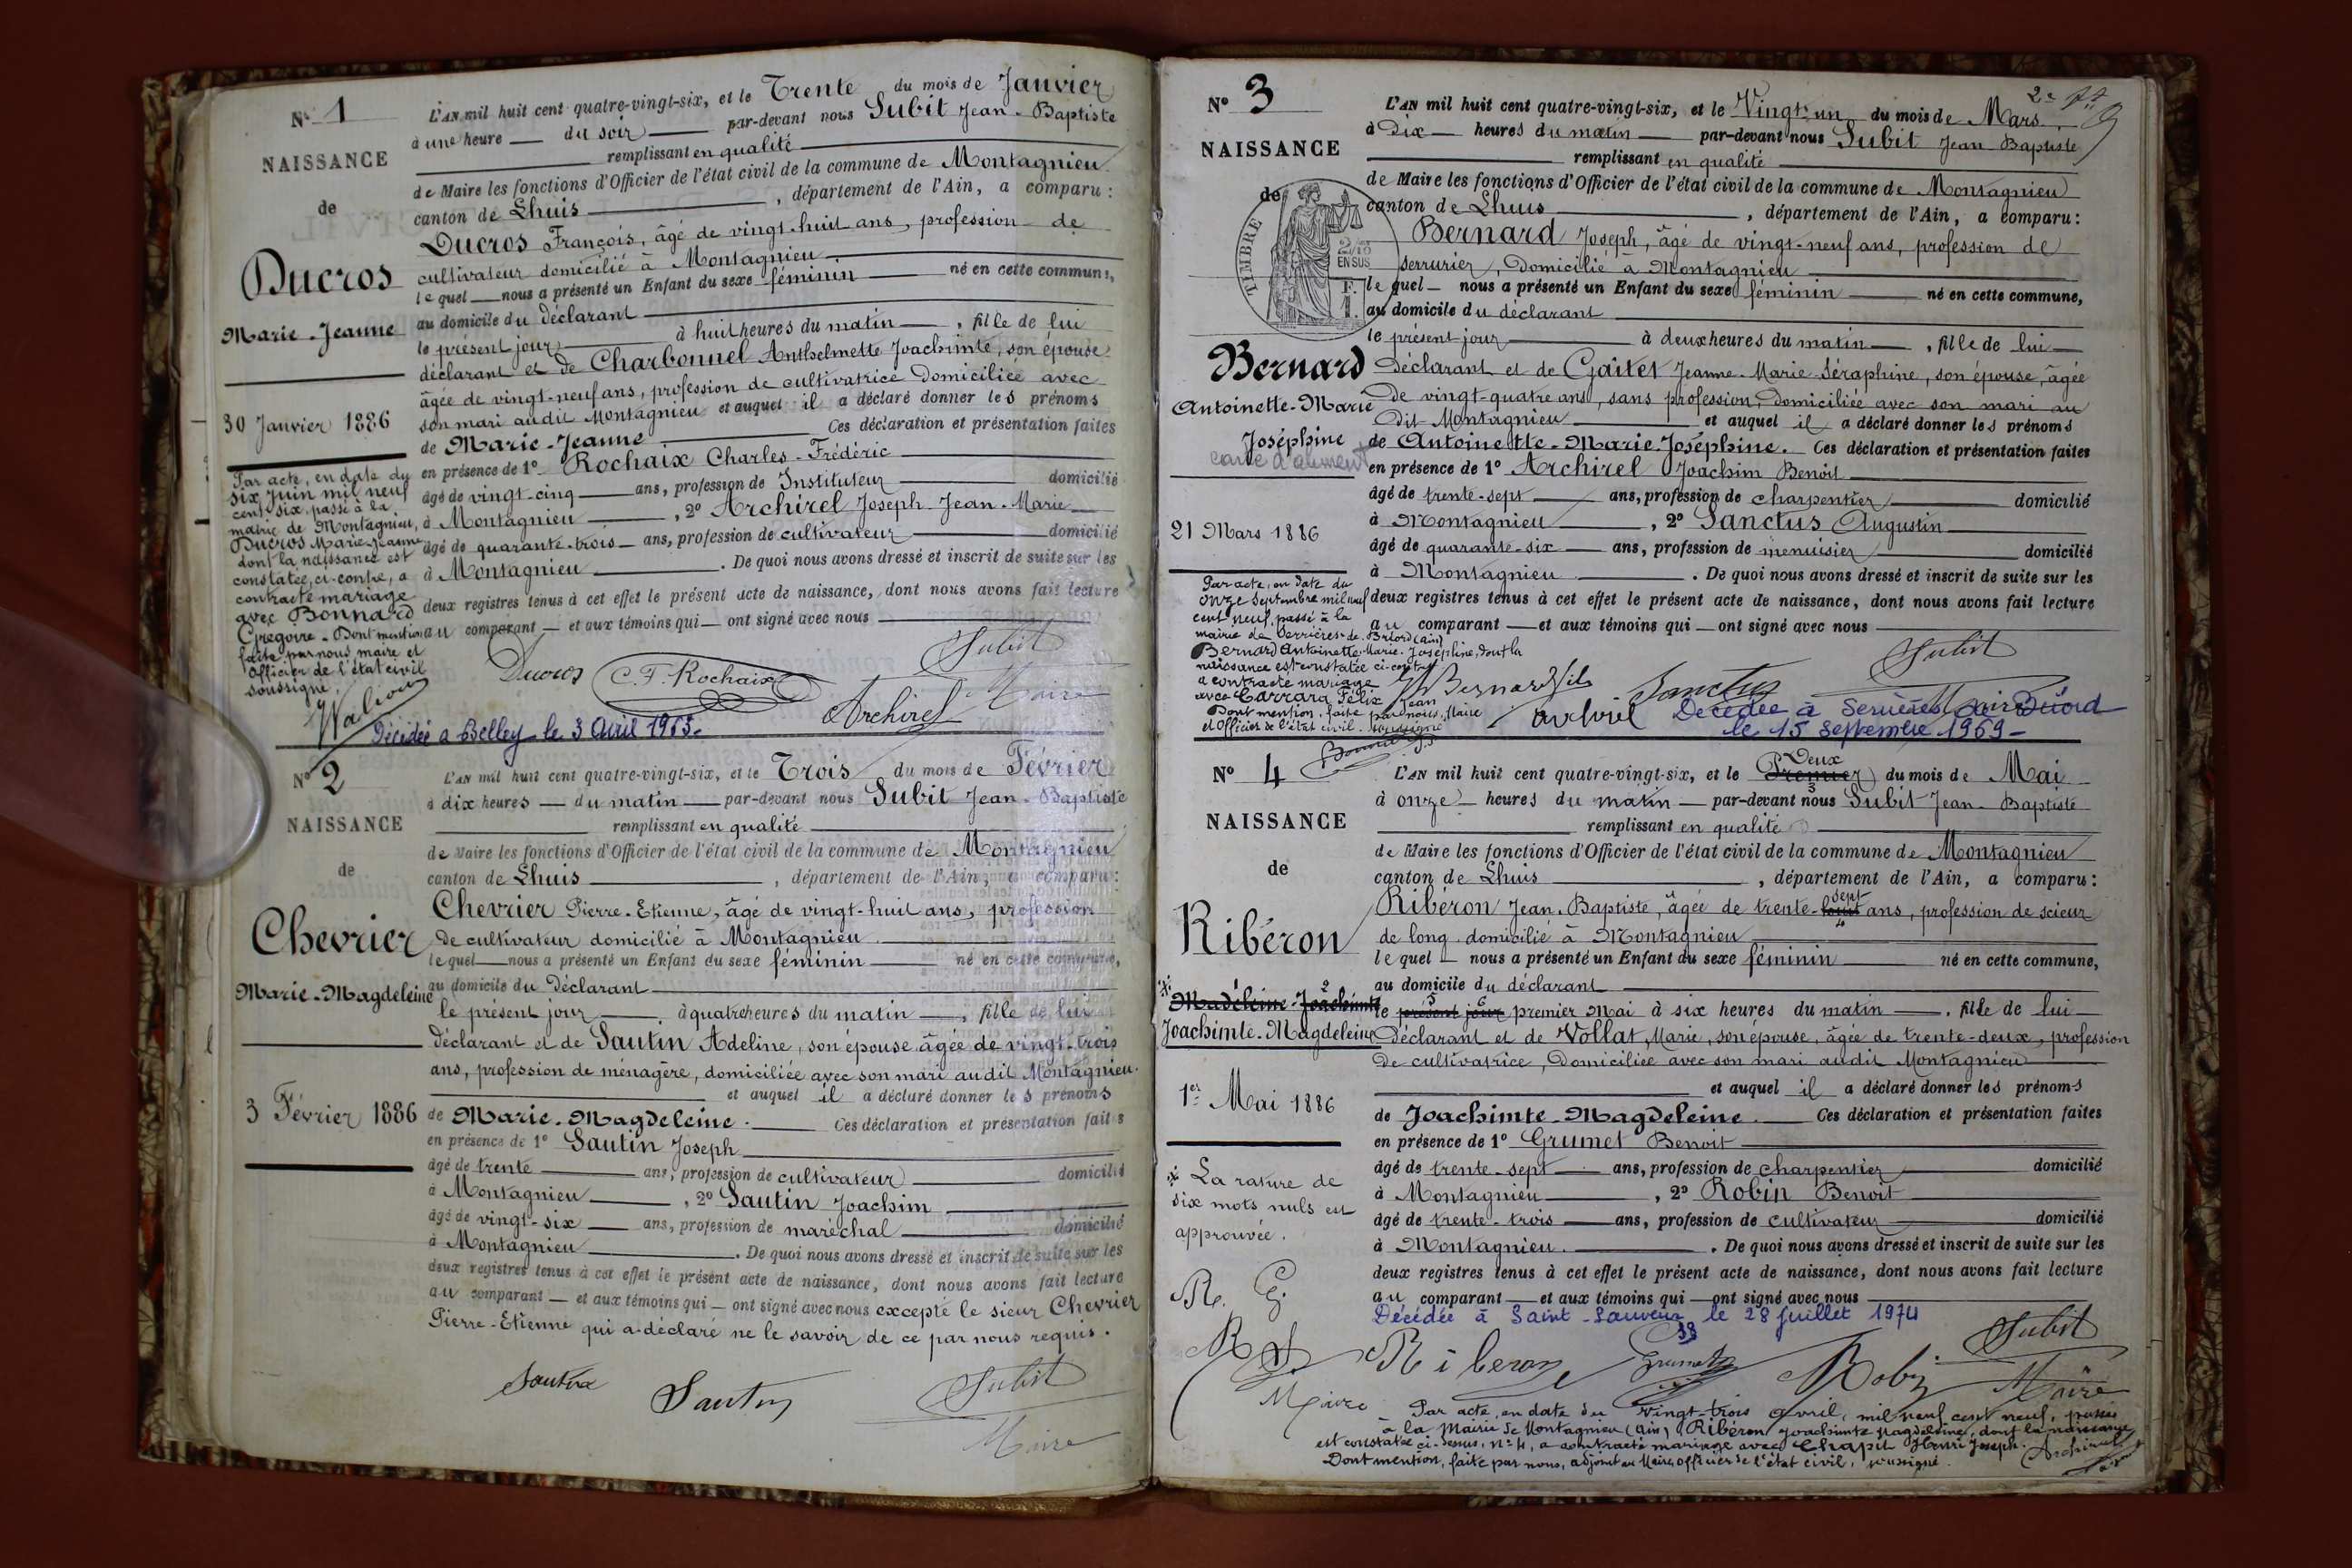 N° 1
NAISSANCE
de
Ducros
Marie-Jeanne
30 Janvier 1886
Par acte, en date du
six Juin mil neuf
cent six, passé à la
mairie de Montagnieu,
Ducros Marie-Jeanne
dont la naissance est
constatée, ci-contre, a
contracté mariage
avec Bonnard
Grégoire. Dont mention
faite par nous, maire et
Officier de l'état civil
soussigné.
L'AN mil huit cent quatre-vingt-six, et le Trente du mois de Janvier
à une heure du soir par-devant nous Subit Jean-Baptiste
remplissant en qualité
de Maire les fonctions d'Officier de l'état civil de la commune de Montagnieu
canton de Lhuis, département de l'Ain, a comparu:
Ducros François, âgé de vingt-huit ans, profession de
cultivateur domicilié à Montagnieu
lequel nous a présenté un Enfant du sexe féminin né en cette commune,
au domicile du déclarant
le présent jour à huit heures du matin, fille de lui
déclarant et de Charbonnel Anthelmette Joachimte, son épouse
âgée de vingt-neuf ans, profession de cultivatrice domiciliée avec
son mari audit Montagnieu et auquel il a déclaré donner les prénoms
de Marie-Jeanne Ces déclaration et présentation faites
en présence de 1° Rochaix Charles-Frédéric
âgé de vingt-cinq ans, profession de Instituteur domicilié
à Montagnieu, 2° Archirel Joseph-Jean-Marie
âgé de quarante-trois ans, profession de cultivateur domicilié
à Montagnieu. De quoi nous avons dressé et inscrit de suite sur les
deux registres tenus à cet effet le présent acte de naissance, dont nous avons fait lecture
au comparant et aux témoins qui ont signé avec nous
Ducros C. F. Rochaix Archirel Subit
Maire
Décédée à Belley le 3 Avril 1963.
N° 2
NAISSANCE
de
Chevrier
Marie-Magdeleine
3 Février 1886
L'AN mil huit cent quatre-vingt-six, et le Trois du mois de Février
à dix heures du matin par-devant nous Subit Jean-Baptiste
remplissant en qualité
de Maire les fonctions d'Officier de l'état civil de la commune de Montagnieu
canton de Lhuis, département de l'Ain, a comparu:
Chevrier Pierre-Etienne, âgé de vingt-huit ans, profession
de cultivateur domicilié à Montagnieu
lequel nous a présenté un Enfant du sexe féminin né en cette commune,
au domicile du déclarant
le présent jour à quatre heures du matin, fille de lui
déclarant et de Sautin Adeline, son épouse âgée de vingt-trois
ans, profession de ménagère, domiciliée avec son mari audit Montagnieu.
et auquel il a déclaré donner les prénoms
de Marie-Magdeleine. Ces déclaration et présentation faites
en présence de 1° Sautin Joseph
âgé de trente ans, profession de cultivateur domicilié
à Montagnieu, 2° Sautin Joachim
âgé de vingt-six ans, profession de maréchal domicilié
à Montagnieu. De quoi nous avons dressé et inscrit de suite sur les
deux registres tenus à cet effet le présent acte de naissance, dont nous avons fait lecture
au comparant et aux témoins qui ont signé avec nous excepté le sieur Chevrier
Pierre-Etienne qui a déclaré ne le savoir de ce par nous requis.
Sautin Sautin Subit
Maire
N° 3
NAISSANCE
de
TIMBRE
2/10
EN SUS
Bernard
Antoinette-Marie
Joséphine
21 Mars 1886
Par acte, en date du
onze Septembre mil neuf
cent neuf, passé à la
mairie de Serrières-de-Briord (Ain)
Bernard Antoinette-Marie-Joséphine, dont la
naissance est constatée ci-contre,
a contracté mariage
avec Carrara Félix Jean
Dont mention, faite par nous, Maire
et Officier de l'état civil, soussigné
L'AN mil huit cent quatre-vingt-six, et le Vingt-un du mois de Mars
à Dix heures du matin par-devant nous Subit Jean-Baptiste
remplissant en qualité
de Maire les fonctions d'Officier de l'état civil de la commune de Montagnieu
canton de Lhuis, département de l'Ain, a comparu:
Bernard Joseph, âgé de vingt-neuf ans, profession de
serrurier, domicilié à Montagnieu
lequel nous a présenté un Enfant du sexe féminin né en cette commune,
au domicile du déclarant
le présent jour à deux heures du matin, fille de lui
déclarant et de Gaitet Jeanne-Marie-Séraphine, son épouse, âgée
de vingt-quatre ans, sans profession, domiciliée avec son mari au
dit Montagnieu et auquel il a déclaré donner les prénoms
de Antoinette-Marie-Joséphine. Ces déclaration et présentation faites
en présence de 1° Archirel Joachim Benoit
âgé de trente-sept ans, profession de charpentier domicilié
à Montagnieu, 2° Sanctus Augustin
âgé de quarante-six ans, profession de menuisier domicilié
à Montagnieu. De quoi nous avons dressé et inscrit de suite sur les
deux registres tenus à cet effet le présent acte de naissance, dont nous avons fait lecture
au comparant et aux témoins qui ont signé avec nous
Bernard fils Archirel Sanctus Subit
Maire
Décédée à Serrières de Briord
le 15 septembre 1969
N° 4
NAISSANCE
de
Ribéron
Madeleine-Joachimte
Joachimte-Magdeleine
1er Mai 1886
La rature de
six mots nuls est
approuvée.
R. G.
R S
Maire
L'AN mil huit cent quatre-vingt-six, et le Premier Deux du mois de Mai
à onze heures du matin par-devant nous Subit Jean-Baptiste
remplissant en qualité
de Maire les fonctions d'Officier de l'état civil de la commune de Montagnieu
canton de Lhuis, département de l'Ain, a comparu:
Ribéron Jean-Baptiste, âgée de trente-huit sept ans, profession de scieur
de long domicilié à Montagnieu
lequel nous a présenté un Enfant du sexe féminin né en cette commune,
au domicile du déclarant
le présent jour premier Mai à six heures du matin, fille de lui
déclarant et de Vollat Marie, son épouse, âgée de trente-deux, profession
de cultivatrice, domiciliée avec son mari audit Montagnieu
et auquel il a déclaré donner les prénoms
de Joachimte-Magdeleine. Ces déclaration et présentation faites
en présence de 1° Grumet Benoit
âgé de trente-sept ans, profession de charpentier domicilié
à Montagnieu, 2° Robin Benoit
âgé de trente-trois ans, profession de cultivateur domicilié
à Montagnieu. De quoi nous avons dressé et inscrit de suite sur les
deux registres tenus à cet effet le présent acte de naissance, dont nous avons fait lecture
au comparant et aux témoins qui ont signé avec nous
Décédée à Saint-Sauveur le 28 juillet 1974
38
Riberon Grumet Robin Subit
Maire
Par acte, en date du vingt-trois avril, mil neuf cent neuf, passé
à la Mairie de Montagnieu (Ain) Ribéron Joachimte Magdeleine, dont la naissance
est constatée ci-dessus, n° 4, a contracté mariage avec Chapit Henri Joseph.
Dont mention, faite par nous, adjoint au Maire, officier de l'état civil, soussigné.